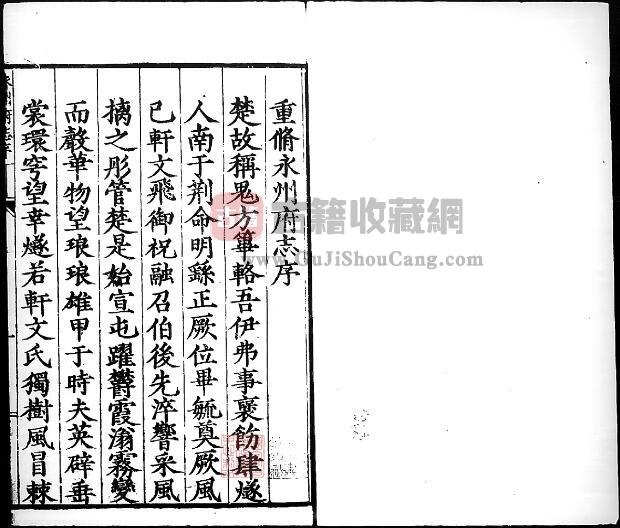 重脩永州府志序
楚故稱鬼方篳輅吾伊弗事褒飭肆燧
人南于荆命明繇正厥位畢毓奠厥風
已軒文飛御祝融召伯後先淬響采風
摛之彤管楚是始宣屯躍欝霞滃霧變
而聲華物望琅琅雄甲于時夫英辟垂
裳環穹望幸燧若軒文氏獨樹風冒棘
古籍收藏網
www.GuJiShouCang.com